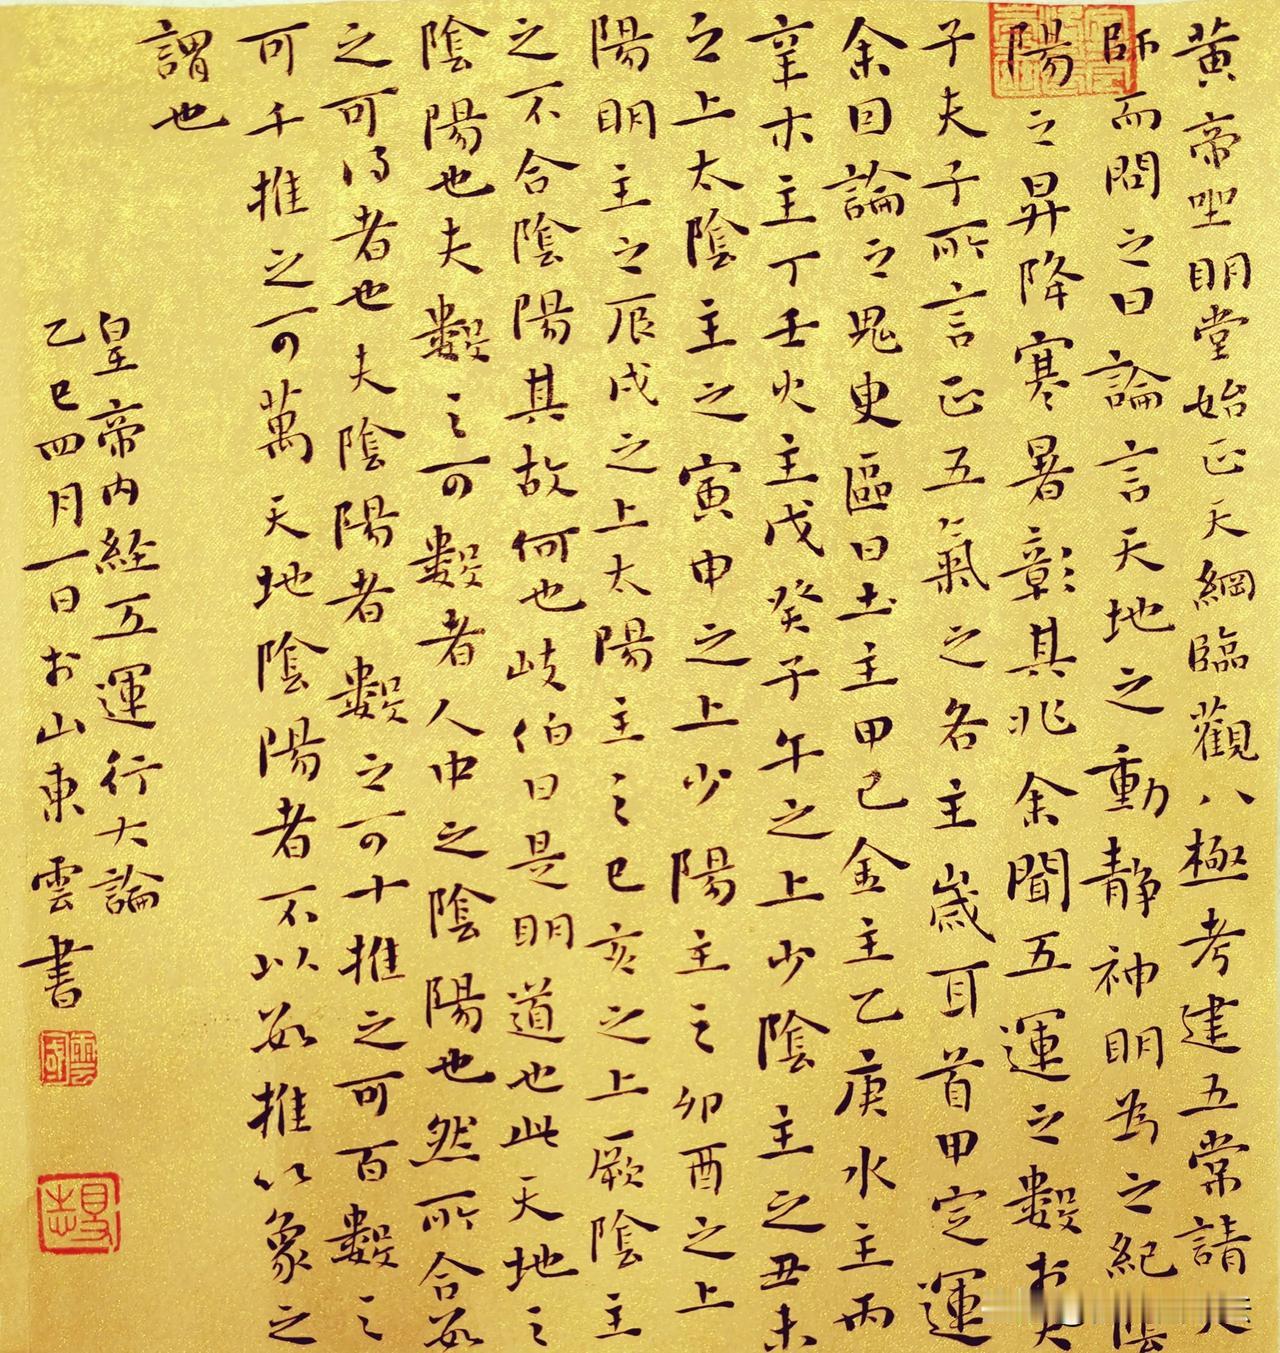 黃帝坐明堂始正天綱臨觀八極考建五常請天
師而問之曰論言天地之動靜神明為之紀陰
陽之昇降寒暑彰其兆余聞五運之數於夫
子夫子所言正五氣之各主歲耳首甲定運
余因論之鬼臾區曰土主甲己金主乙庚水主丙
辛木主丁壬火主戊癸子午之上少陰主之丑未
之上太陰主之寅申之上少陽主之卯酉之上
陽明主之辰戌之上太陽主之巳亥之上厥陰主
之不合陰陽其故何也岐伯曰是明道也此天地之
陰陽也夫數之可數者人中之陰陽也然所合數
之可得者也夫陰陽者數之可十推之可百數之
可千推之可萬天地陰陽者不以數推以象之
謂也
皇帝內經五運行大論
乙巳四月一日於山東雲書